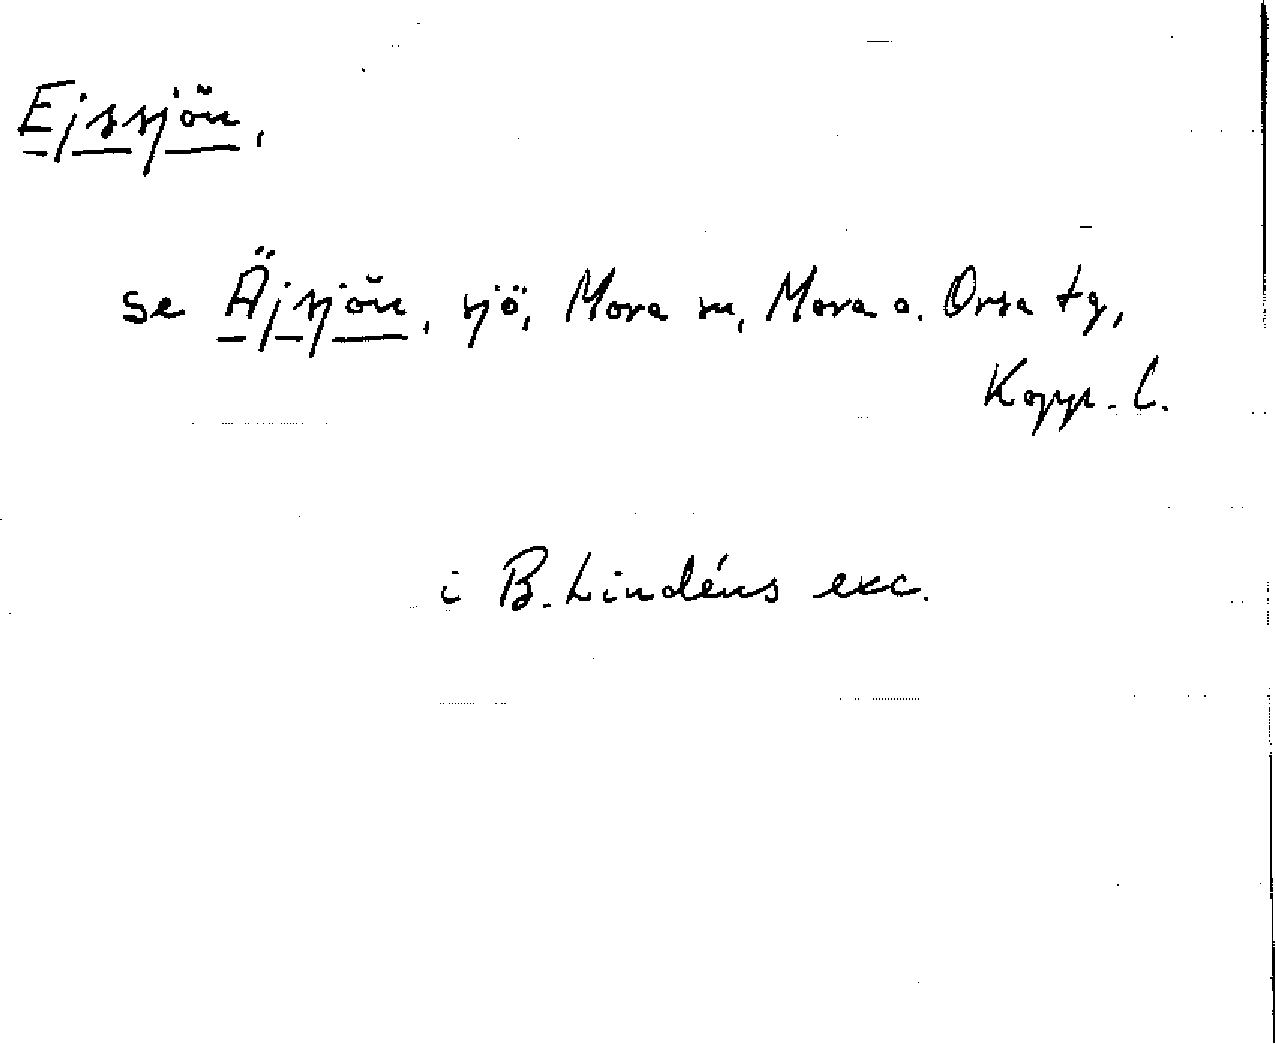 Ejssjön,
se Äjsjön, sjö, Mora sn, Mora o. Orsa tg,
Kopp. l.
i B. Lindéns exc.